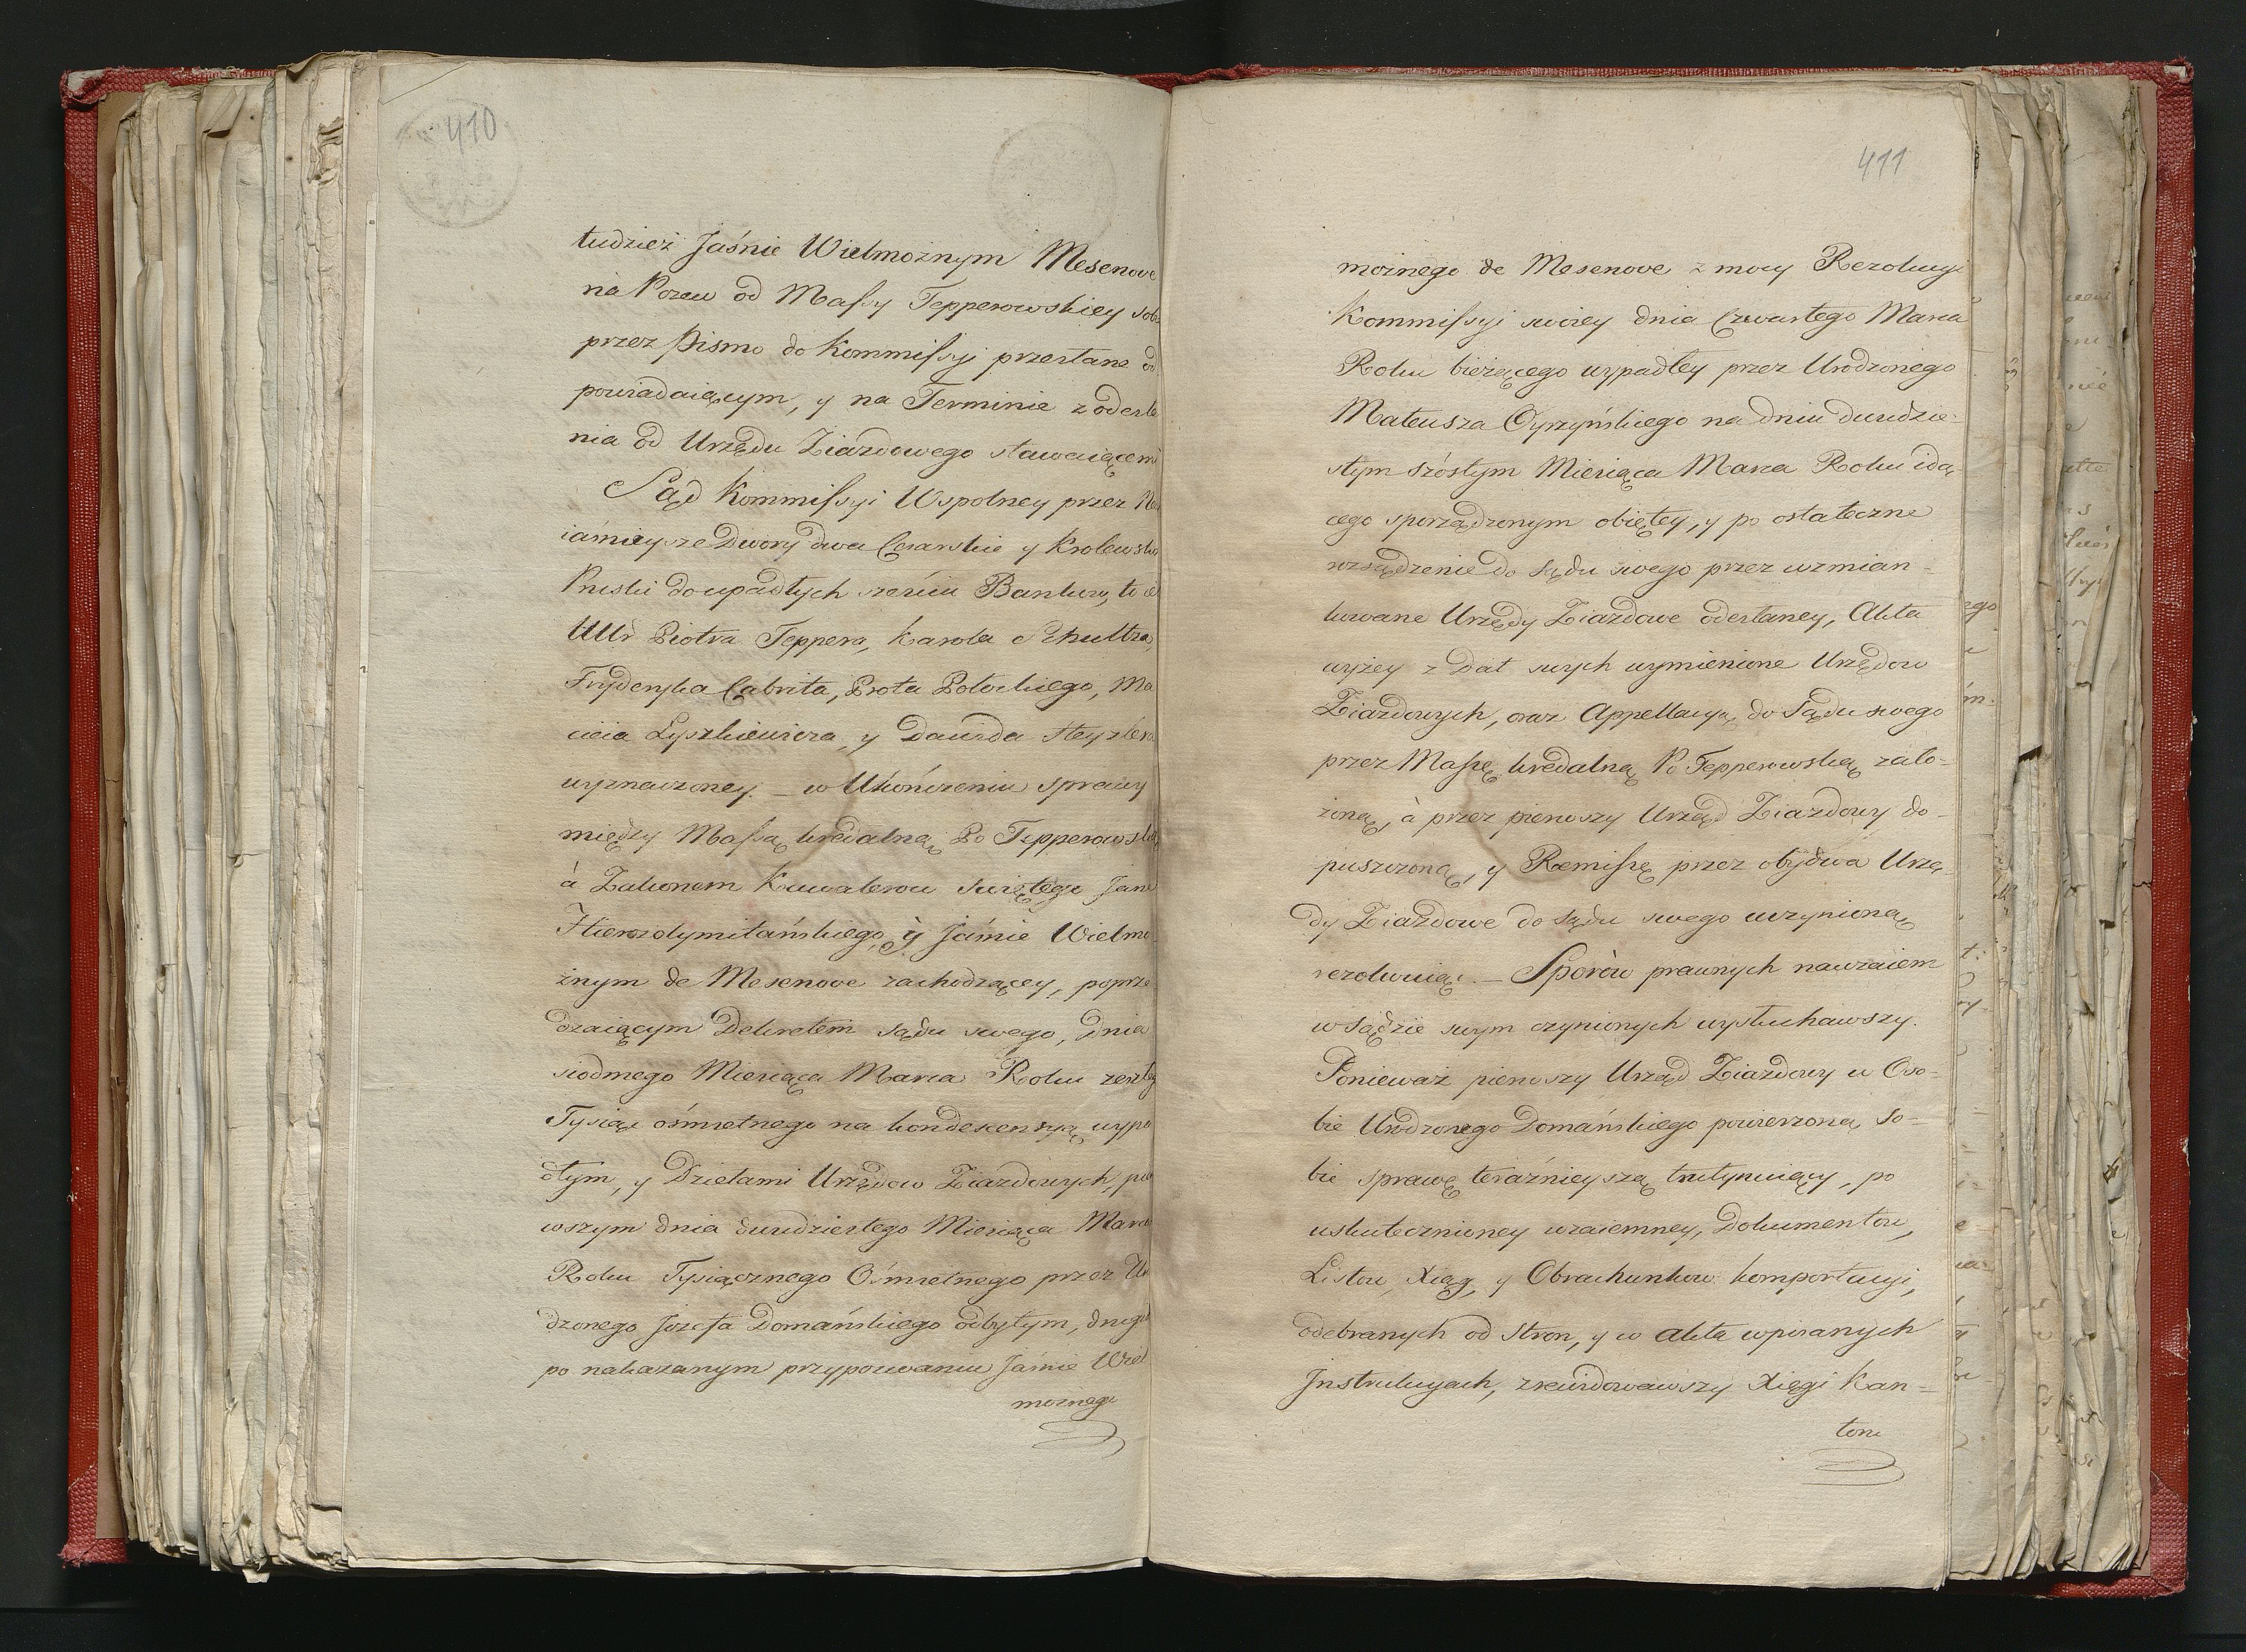 410
tudzież Jaśnie Wielmożnym Mesenove
na Pozew od Massy Tepperowskiey sobie
przez Pismo do Kommissyi przesłane od
powiadaiącym, y na Terminie z odesła
nia od Urzędu Ziazdowego stawaiącemi
Sąd Kommissyi Wspolney przez Na
iaśnieysze Dwory dwa Cesarskie y Krolewsko
Pruski do upadłych sześciu Bankow, to iest
UUr Piotra Teppera, Karola Schultza,
Fryderyka Cabrita, Prota Potockiego, Ma
cieia Łyszkiewicza, y Dawida Heyzlera
wyznaczoney. – w Ukończeniu sprawy
między Massą kredalną Po Tepperowską
à Zakonem Kawalerow Swiętego Jana
Hierozolymitańskiego, ÿ Jaśnie Wielmo
żnym de Mesenove zachodzącey, poprze
dzaiącym Dekretem sądu swego, dnia
siodmego Miesiąca Marca Roku zeszłeg
Tysiąc ośmsetnego na kondescensyą wypa
dłym, y Dziełami Urzędow Ziazdowych, pier
wszym dnia dwudziestego Miesiąca Marca
Roku Tysiącznego Ośmsetnego przez Uro
dzonego Jozefa Domańskiego odbytym, drugi
po nakazanym przypozwaniu Jaśnie Wiel
możnego
411
możnego de Mesenove z mocy Rezolucyi
Kommissyi swoiey dnia Czwartego Marca
Roku bieżącego wypadłey przez Urodzonego
Mateusza Cyrzyńskiego na dniu dwudzie-
stym szóstym Miesiąca Marca Roku idą-
cego sporządzonym obiętey, y po ostateczne
rozsądzenie do Sądu swego przez wzmian-
kowane Urzędy Ziazdowe odesłaney, Akta
wyżey z Dat swych wymienione Urzędow
Ziazdowych, oraz Appellacyą do Sądu swego
przez Massę kredalną Po Tepperowską zało-
żoną, à przez pierwszy Urząd Ziazdowy do-
puszczoną, y Remissę przez obydwa Urzę-
dy Ziazdowe do Sądu swego uczynioną
rezolwuiąc. – Sporòw prawnych nawzaiem
w Sądzie swym czynionych wysłuchawszy.
Ponieważ pierwszy Urząd Ziazdowy w Oso-
bie Urodzonego Domańskiego powierzoną so-
bie sprawę teraźnieyszą trutynuiący, po
uskutecznioney wzaiemney, Dokumentow,
Listow, Xiąg, y Obrachunkow komportacyi,
odebranych od Stron, y w Akta wpisanych
Instrukcyach, zrewidowawszy Xięgi Kan=
toru